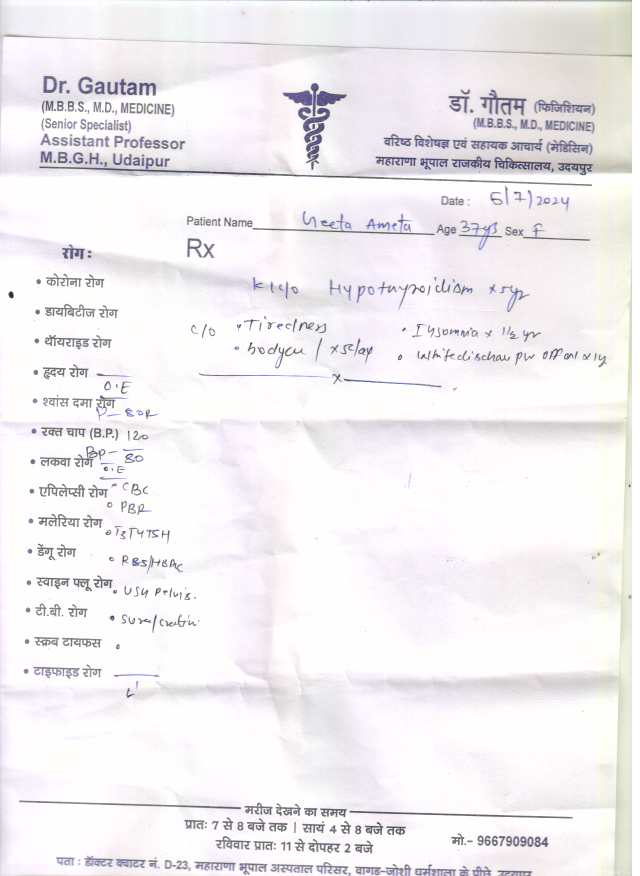 Dr. Gautam
(M.B.B.S., M.D., MEDICINE)
(Senior Specialist)
Assistant Professor
M.B.G.H., Udaipur
डॉ. गौतम (फिजिशियन)
(M.B.B.S., M.D., MEDICINE)
वरिष्ठ विशेषज्ञ एवं सहायक आचार्य (मेडिसिन)
महाराणा भूपाल राजकीय चिकित्सालय, उदयपुर
Date : 5/7/2024
Patient Name Geeta Ameta Age 37yrs Sex F
Rx
रोग :
• कोरोना रोग
K/c/o Hypothyroidism x 5yr
• डायबिटीज रोग
C/O • Tiredness • Insomnia x 1/2 yr
• थॉयराइड रोग
• whitedischar pv off on x 1y
• हृदय रोग
O.E
• श्वांस दमा रोग
P- 80R
• रक्त चाप (B.P.) 120
BP- 80
• लकवा रोग
O.E
• CBC
• एपिलेप्सी रोग
• PBR
• मलेरिया रोग
• T3T4TSH
• डेंगू रोग
• RBS/HBAC
• स्वाइन फ्लू रोग
• USG Pelvis.
• टी.बी. रोग
• स्क्रब टायफस
• टाइफाइड रोग
मरीज देखने का समय
प्रातः 7 से 8 बजे तक | सायं 4 से 8 बजे तक
रविवार प्रातः 11 से दोपहर 2 बजे
मो.- 9667909084
पता : डॉक्टर क्वाटर नं. D-23, महाराणा भूपाल अस्पताल परिसर, वागड-जोशी धर्मशाला के पीछे, उदयपुर